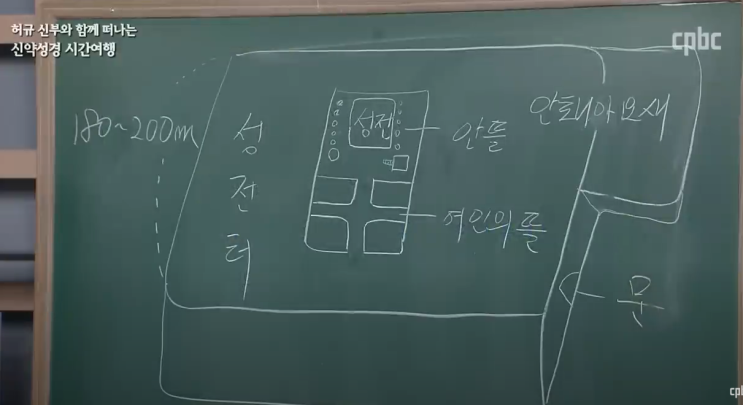 허규 신부와 함께 떠나는
신약성경 시간여행
cpbc
180~200m
성전터
성전
안뜰
안토니아요새
여인의 뜰
문